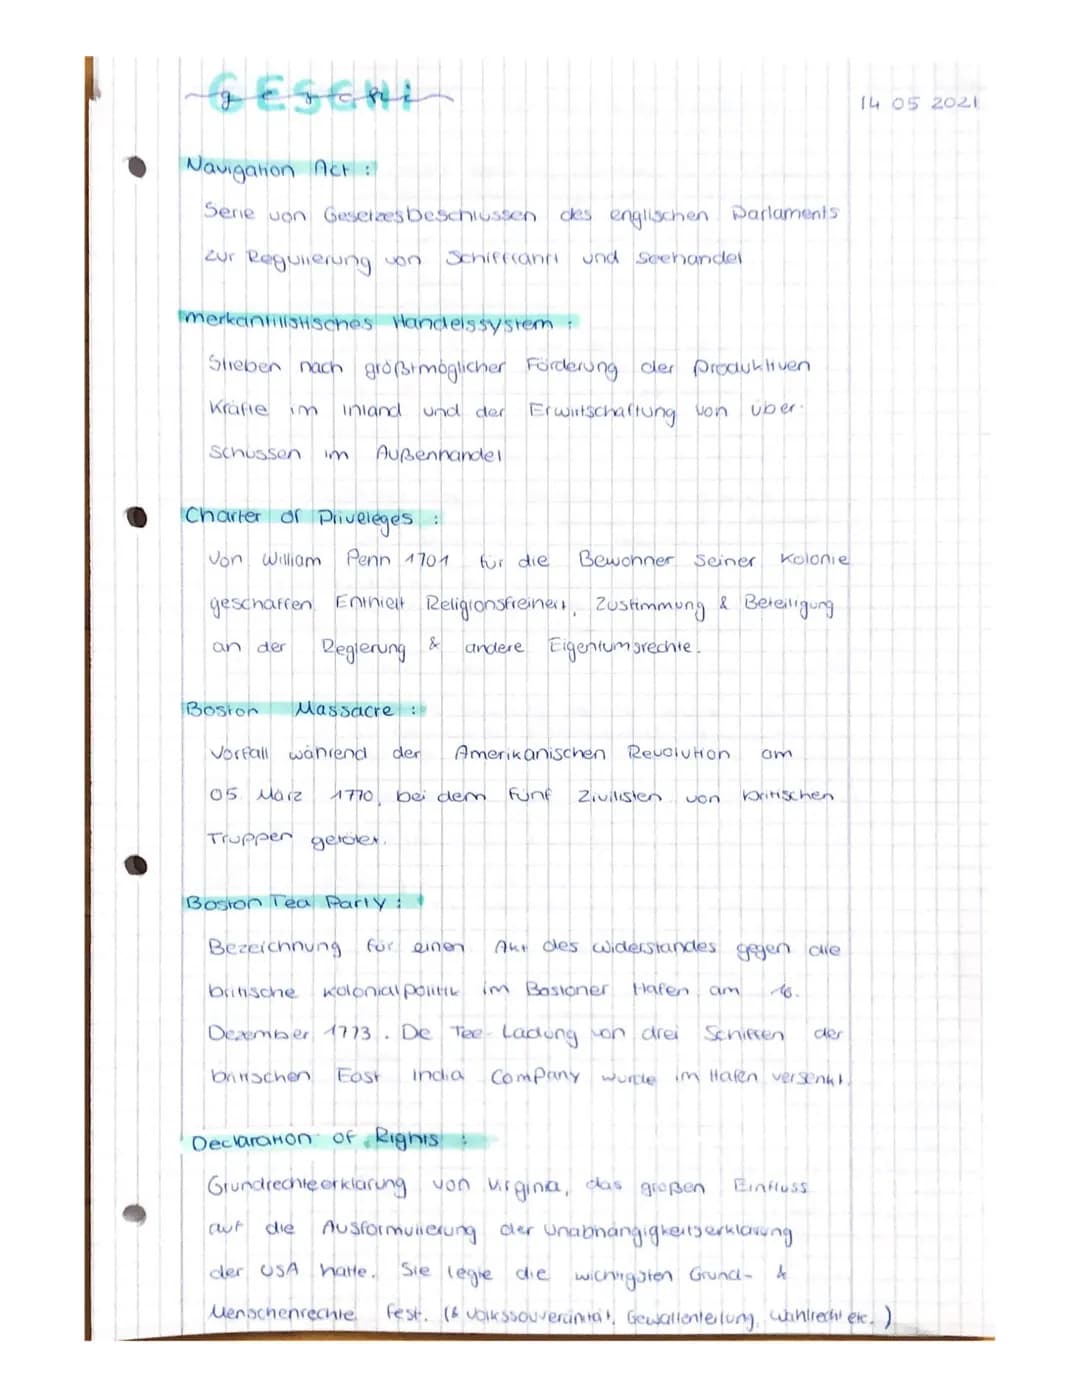 GESCHI
geschi
14 05 2021
Navigation Act :
Serie von Gesetzesbeschlüssen des englischen Parlaments
zur Regulierung von Schifffahrt und Seehandel
merkantilistisches Handelssystem :
Streben nach größtmöglicher Förderung der produktiven
Kräfte im Inland und der Erwirtschaftung von über-
schüssen im Außenhandel
Charter of Priveleges :
Von William Penn 1701 für die Bewohner seiner Kolonie
geschaffen. Enthielt Religionsfreiheit, Zustimmung & Beteiligung
an der Regierung & andere Eigentumsrechte.
Boston Massacre :
Vorfall während der Amerikanischen Revolution am
05. März 1770, bei dem fünf Zivilisten von britischen
Truppen getötet.
Boston Tea Party :
Bezeichnung für einen Akt des Widerstandes gegen die
britische Kolonialpolitik im Bostoner Hafen am 16.
Dezember 1773. De Tee-Ladung von drei Schiffen der
britischen East India Company wurde im Hafen versenkt.
Declaration of Rights :
Grundrechteerklärung von Virginia, das großen Einfluss
auf die Ausformulierung der Unabhängigkeitserklärung
der USA hatte. Sie legte die wichtigsten Grund- &
Menschenrechte fest. (& Volkssouveränität, Gewaltenteilung, Wahlrecht etc.)